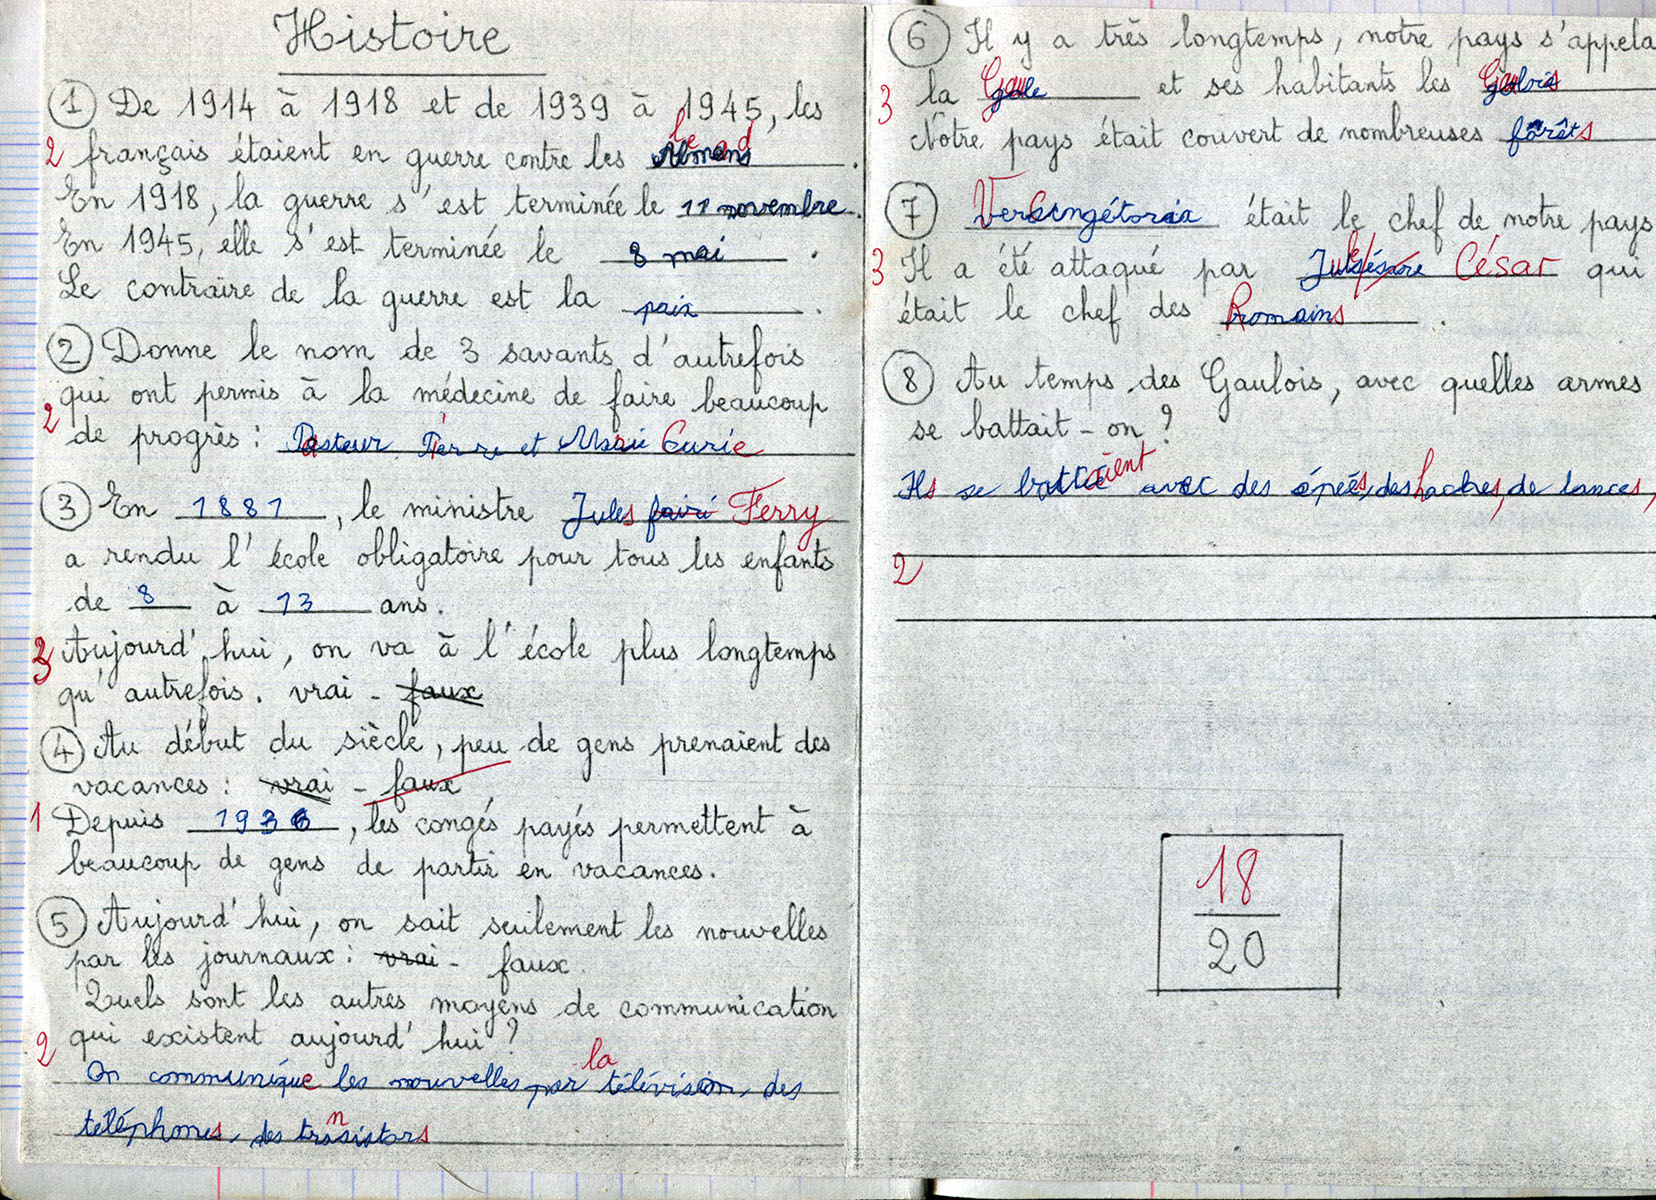 Histoire
① De 1914 à 1918 et de 1939 à 1945, les
2 français étaient en guerre contre les
En 1918, la guerre s'est terminée le 11 novembre.
En 1945, elle s'est terminée le 8 mai.
Le contraire de la guerre est la paix.
② Donne le nom de 3 savants d'autrefois
qui ont permis à la médecine de faire beaucoup
2 de progrès : Pasteur, Pierre et Marie Curie
③ En 1881, le ministre Jules Ferry
a rendu l'école obligatoire pour tous les enfants
de 8 à 13 ans.
3 Aujourd'hui, on va à l'école plus longtemps
qu'autrefois. vrai - faux
④ Au début du siècle, peu de gens prenaient des
vacances : vrai - faux
1 Depuis 1936, les congés payés permettent à
beaucoup de gens de partir en vacances.
⑤ Aujourd'hui, on sait seulement les nouvelles
par les journaux : vrai - faux.
Quels sont les autres moyens de communication
2 qui existent aujourd'hui ?
On communique les nouvelles par la télévision, des
téléphones, des transistors
⑥ Il y a très longtemps, notre pays s'appela
3 la Gaule et ses habitants les Gaulois
Notre pays était couvert de nombreuses forêts
⑦ Vercingétorix était le chef de notre pays
3 Il a été attaqué par Jules César qui
était le chef des Romains.
⑧ Au temps des Gaulois, avec quelles armes
se battait-on ?
Ils se battaient avec des épées, des haches, de lances,
2
18
20